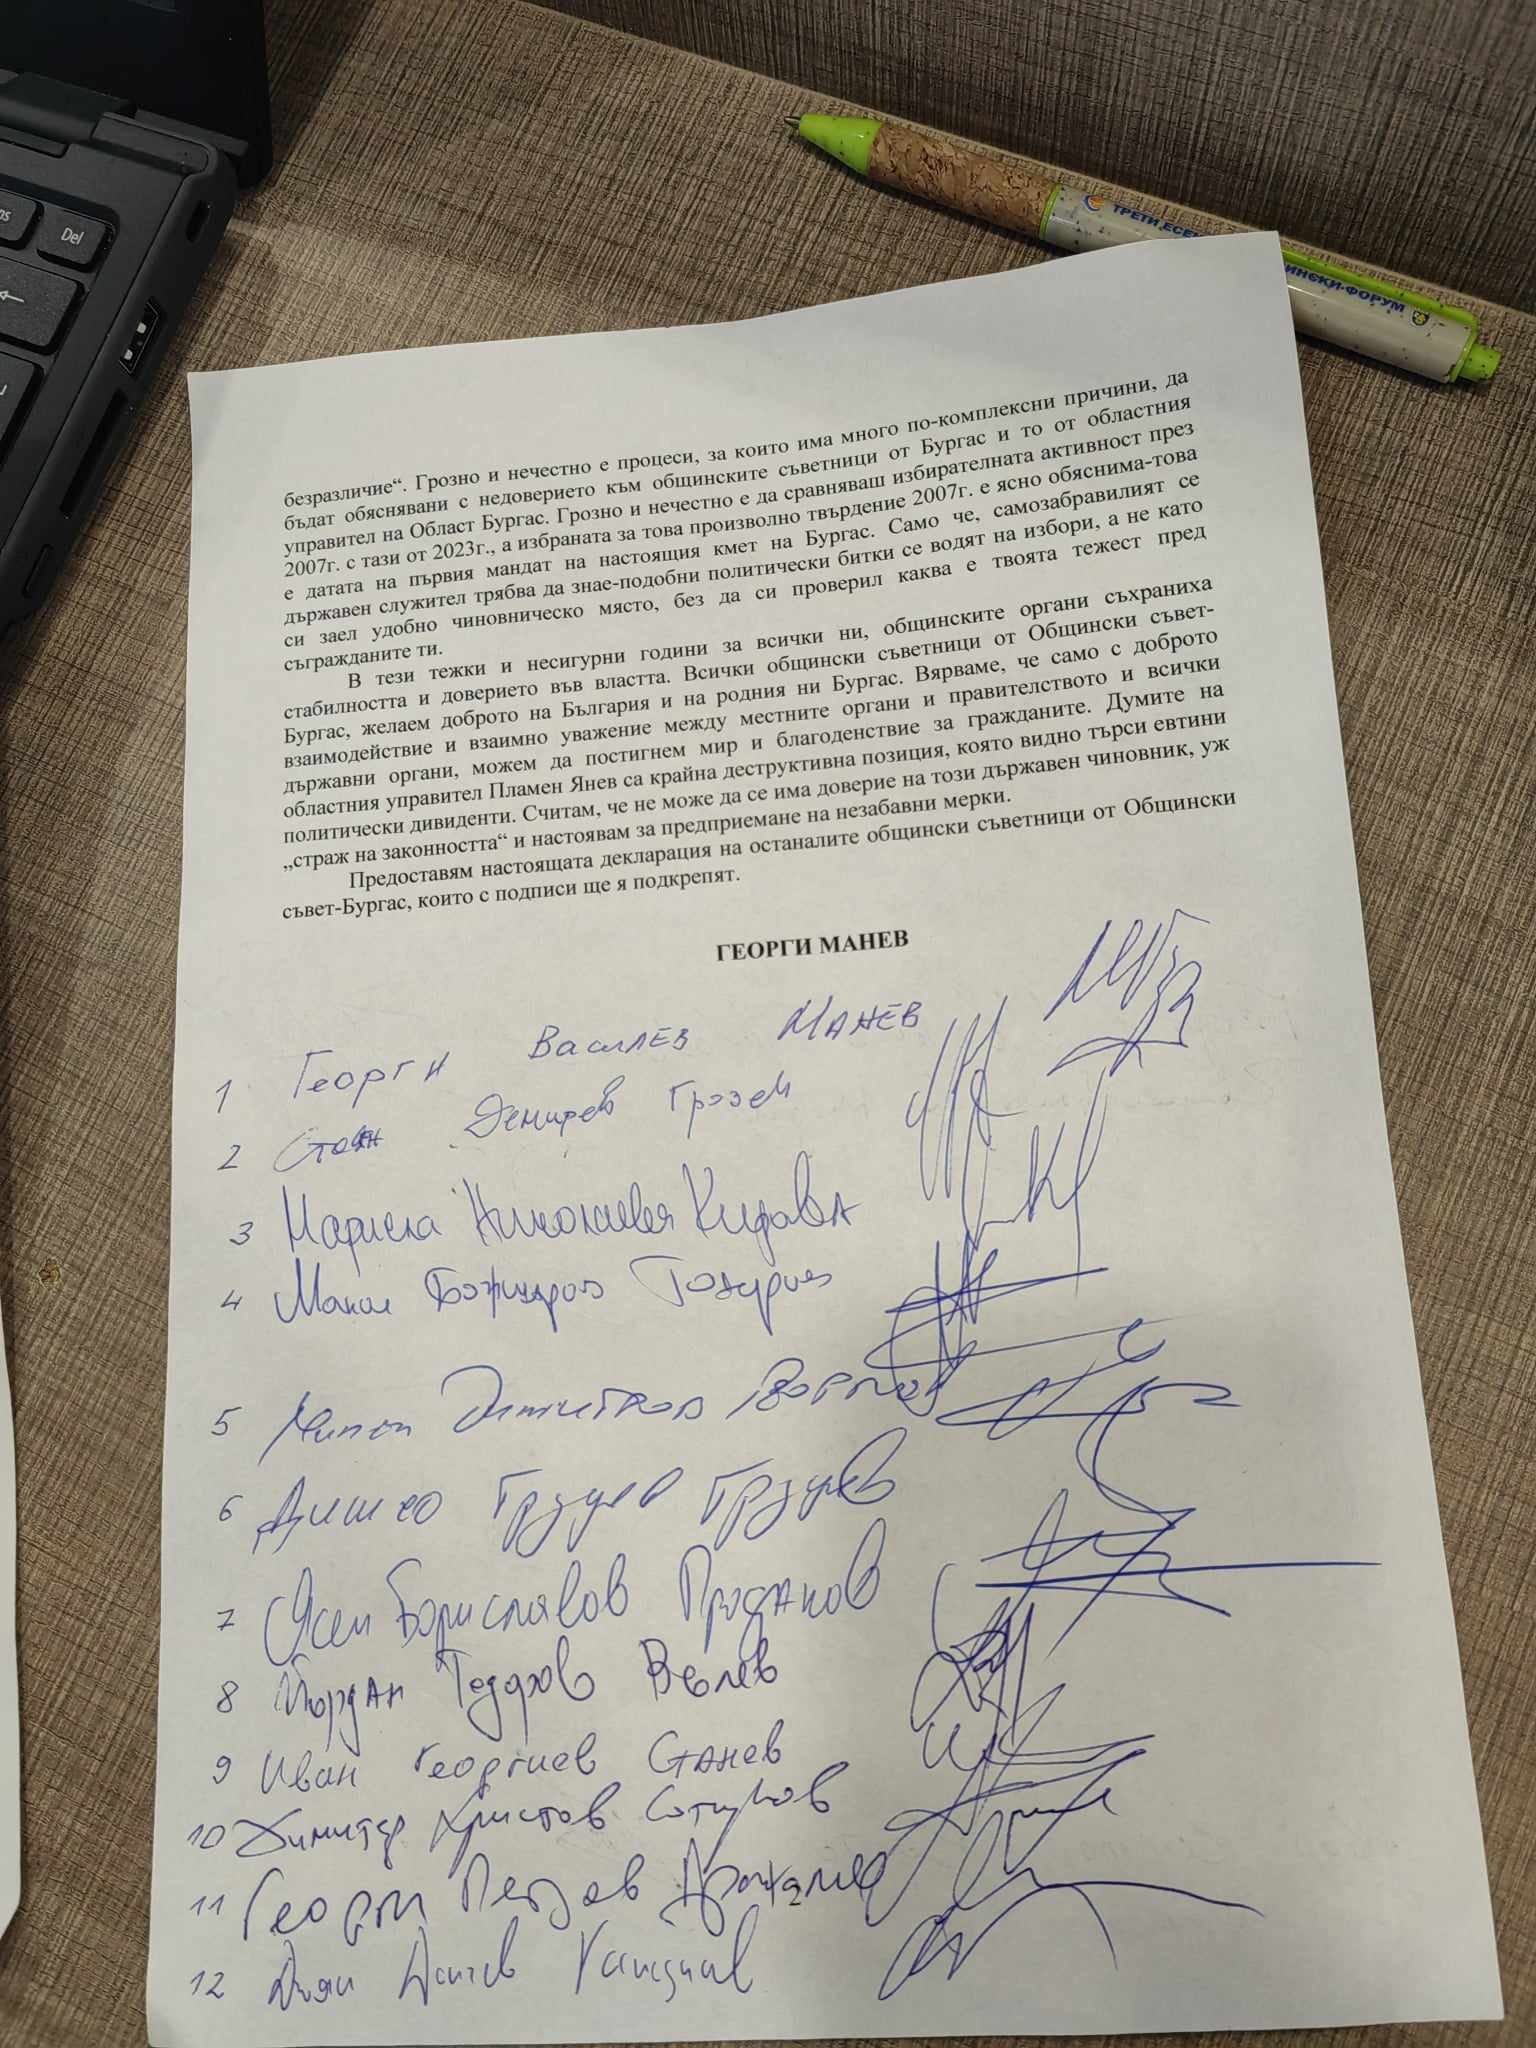 Del
ТРЕТИ ЕСЕ
ИНСКИ ФОРУМ
безразличие“. Грозно и нечестно е процеси, за които има много по-комплексни причини, да
бъдат обяснявани с недоверието към общинските съветници от Бургас и то от областния
управител на Област Бургас. Грозно и нечестно е да сравняваш избирателната активност през
2007г. с тази от 2023г., а избраната за това произволно твърдение 2007г. е ясно обяснима-това
е датата на първия мандат на настоящия кмет на Бургас. Само че, самозабравилият се
държавен служител трябва да знае-подобни политически битки се водят на избори, а не като
си заел удобно чиновническо място, без да си проверил каква е твоята тежест пред
съгражданите ти.
В тези тежки и несигурни години за всички ни, общинските органи съхраниха
стабилността и доверието във властта. Всички общински съветници от Общински съвет-
Бургас, желаем доброто на България и на родния ни Бургас. Вярваме, че само с доброто
взаимодействие и взаимно уважение между местните органи и правителството и всички
държавни органи, можем да постигнем мир и благоденствие за гражданите. Думите на
областния управител Пламен Янев са крайна деструктивна позиция, която видно търси евтини
политически дивиденти. Считам, че не може да се има доверие на този държавен чиновник, уж
„страж на законността“ и настоявам за предприемане на незабавни мерки.
Предоставям настоящата декларация на останалите общински съветници от Общински
съвет-Бургас, които с подписи ще я подкрепят.
ГЕОРГИ МАНЕВ
1 Георги Василев Манев
2 Стоян Демирев Грозев
3 Мариела Николаева Кидова
4 Божидаров
5 Димитров
6 Димчо Грудев Грудев
7 Ясен Бориславов Проданов
8 Йордан Тодоров Велев
9 Иван Георгиев Станев
10 Димитър Христов Сотиров
11 Георги Петров Дражалов
12 Диян Дичев